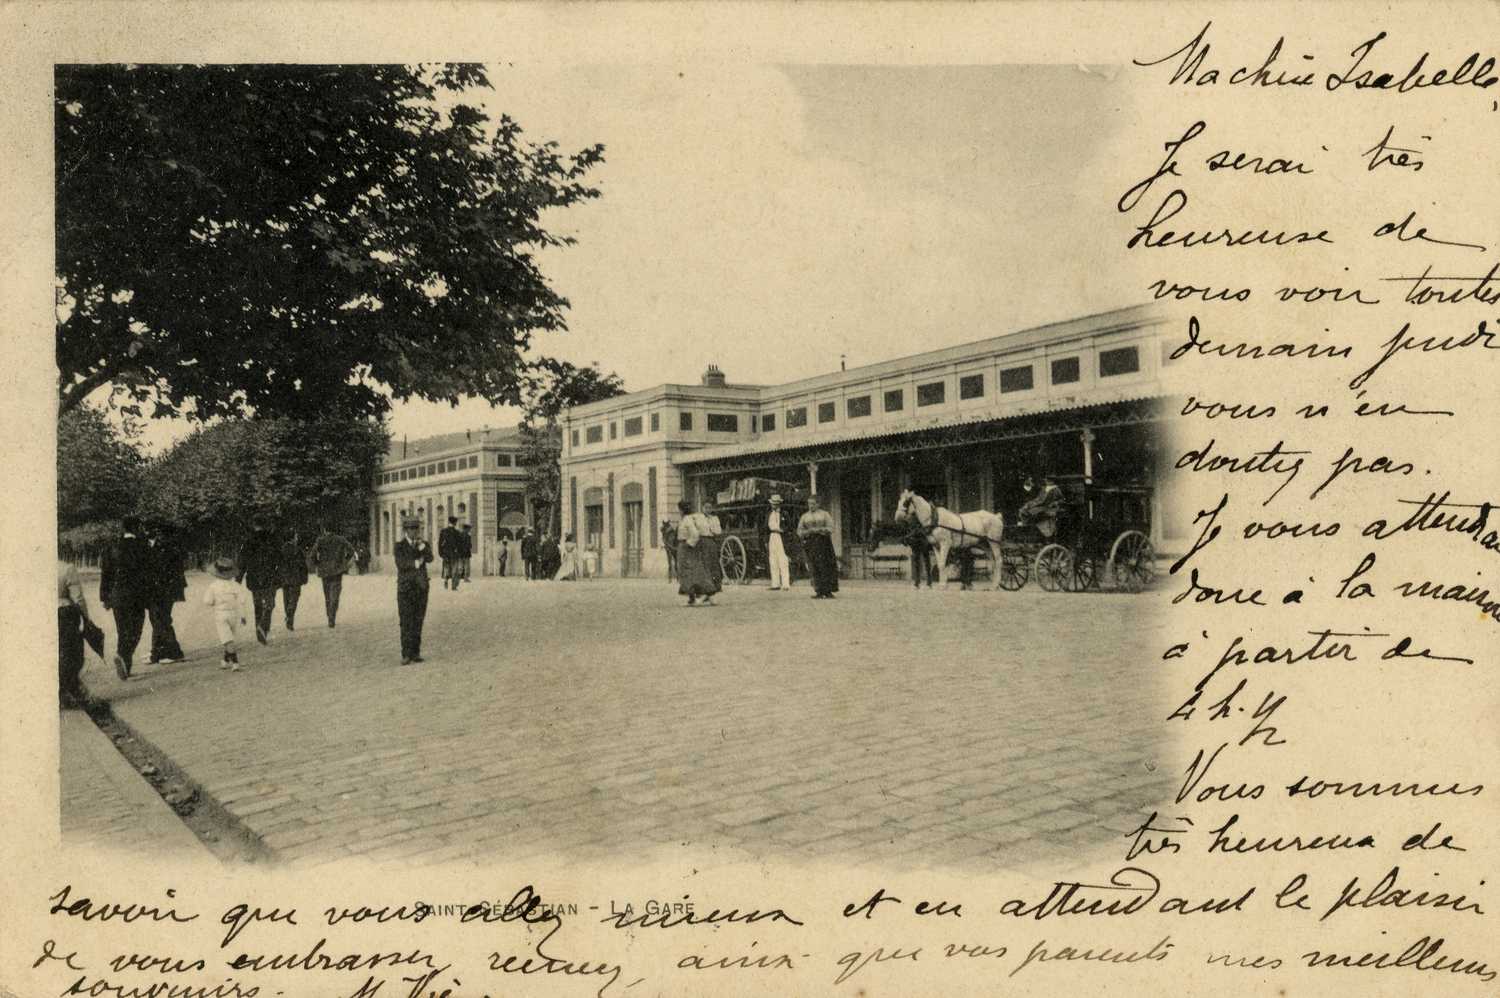 Ma chère Isabelle,
Je serai très
heureuse de
vous voir toutes
demain jeudi
vous n'en
doutez pas.
Je vous attendrai
donc à la maison
à partir de
4 h. ½
Nous sommes
très heureux de
savoir que vous allez mieux et en attendant le plaisir
de vous embrasser, recevez, ainsi que vos parents mes meilleurs
souvenirs.
SAINT-SÉBASTIAN - LA GARE